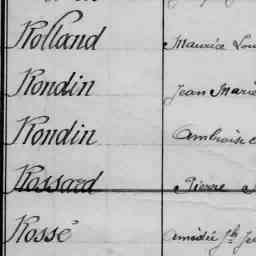 Rolland Maurice Lou
Rondin Jean Marie
Rondin Ambroise
Rossard Pierre
Rossé Amédée Jh